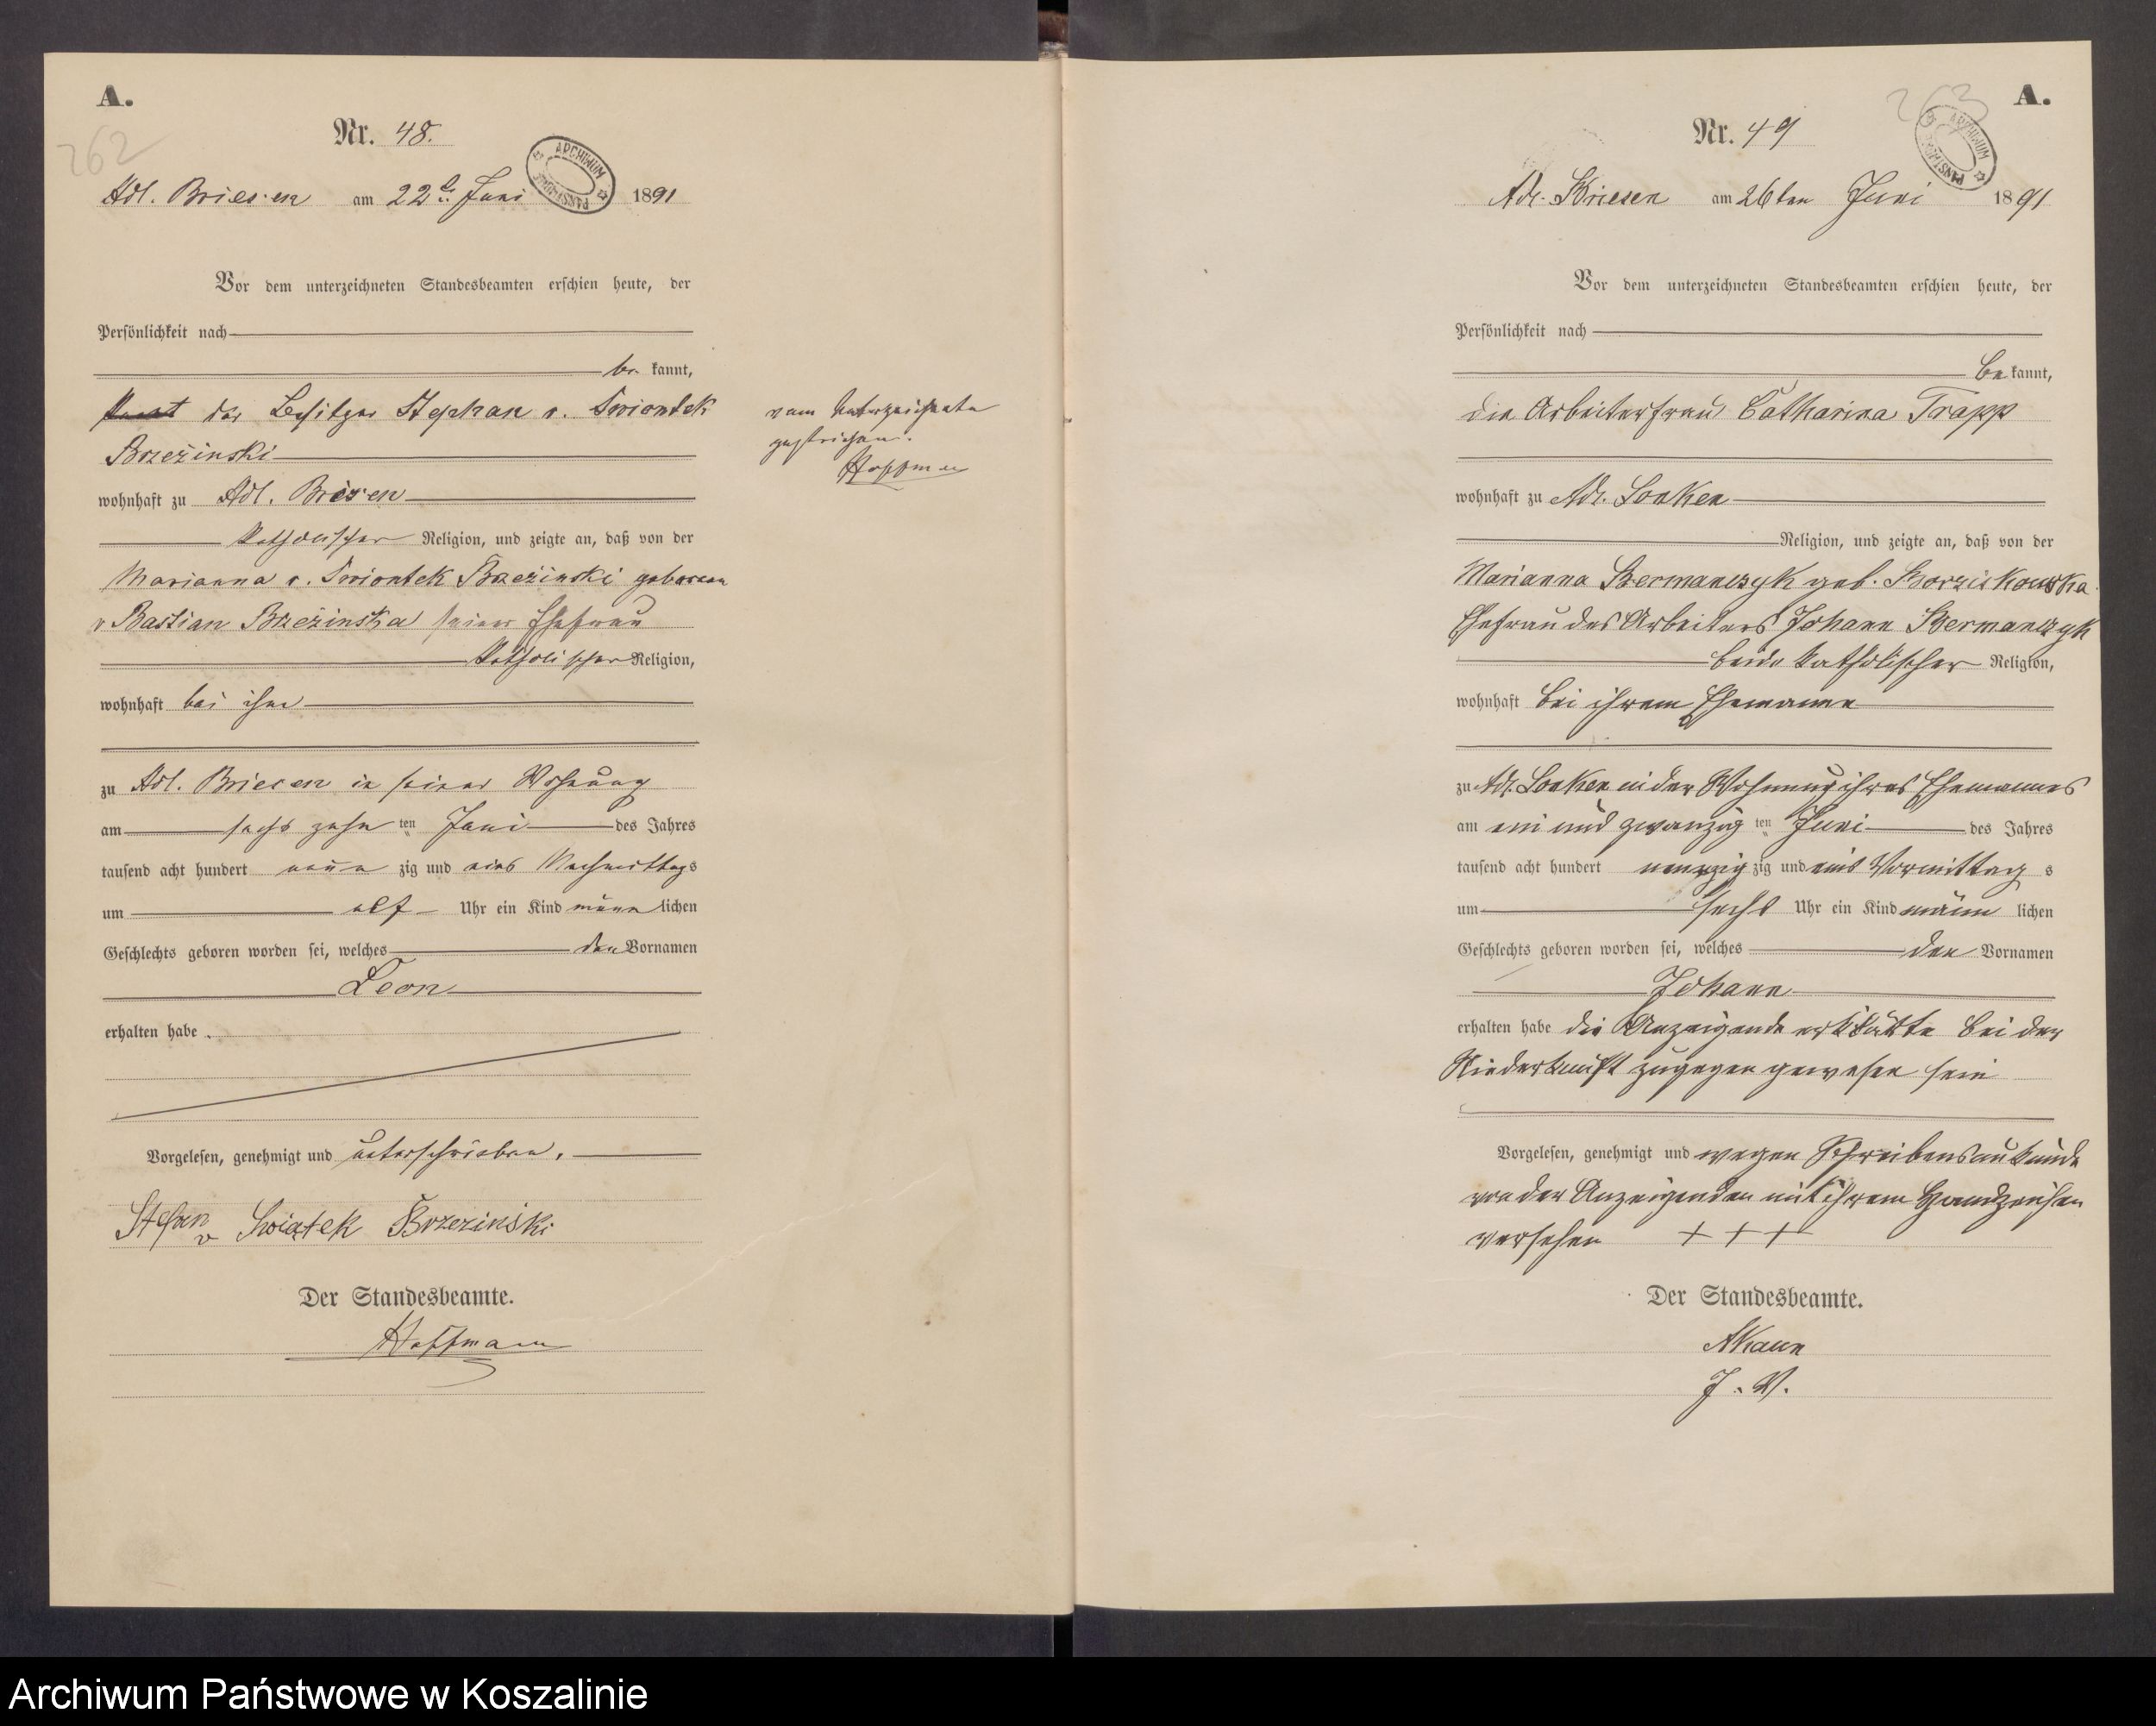 A.
262
Nr. 48.
ARCHIWUM PAŃSTWOWE
Adl. Briesen am 22t Juni 1891
Vor dem unterzeichneten Standesbeamten erschien heute, der
Persönlichkeit nach
be kannt,
der Besitzer Stephan v. Swiontek
Brzeżinski
wohnhaft zu Adl. Briesen
katholischer Religion, und zeigte an, daß von der
Marianna v. Swiontek Brzeżinski geborenen
v Bastian Brzeżinska seiner Ehefrau
katholischer Religion,
wohnhaft bei ihm
zu Adl. Briesen in seiner Wohnung
am sechs zehn ten Juni des Jahres
tausend acht hundert neun zig und eins Nachmittags
um elf Uhr ein Kind männ lichen
Geschlechts geboren worden sei, welches den Vornamen
Leon
erhalten habe.
Vorgelesen, genehmigt und unterschrieben.
Stefan v Swiątek Brzezinski
Der Standesbeamte.
Hoffmann
vom Unterzeichneten
gestrichen.
Hoffmann
A.
263
Nr. 49
ARCHIWUM PAŃSTWOWE
Adl. Briesen am 26ten Juni 1891
Vor dem unterzeichneten Standesbeamten erschien heute, der
Persönlichkeit nach
be kannt,
die Arbeiterfrau Catharina Trapp
wohnhaft zu Adl. Lonken
Religion, und zeigte an, daß von der
Marianna Bermanczyk geb. Borziskowska
Ehefrau des Arbeiters Johann Bermanczyk
beide katholischer Religion,
wohnhaft bei ihrem Ehemanne
zu Adl. Lonken in der Wohnung ihres Ehemannes
am ein und zwanzig ten Juni des Jahres
tausend acht hundert neunzig zig und eins Vormittag s
um sechs Uhr ein Kind männ lichen
Geschlechts geboren worden sei, welches den Vornamen
Johann
erhalten habe die Anzeigende erklärte bei der
Niederkunft zugegen gewesen sein
Vorgelesen, genehmigt und wegen Schreibensunkunde
von der Anzeigenden mit ihrem Handzeichen
versehen + + +
Der Standesbeamte.
J. V.
Archiwum Państwowe w Koszalinie